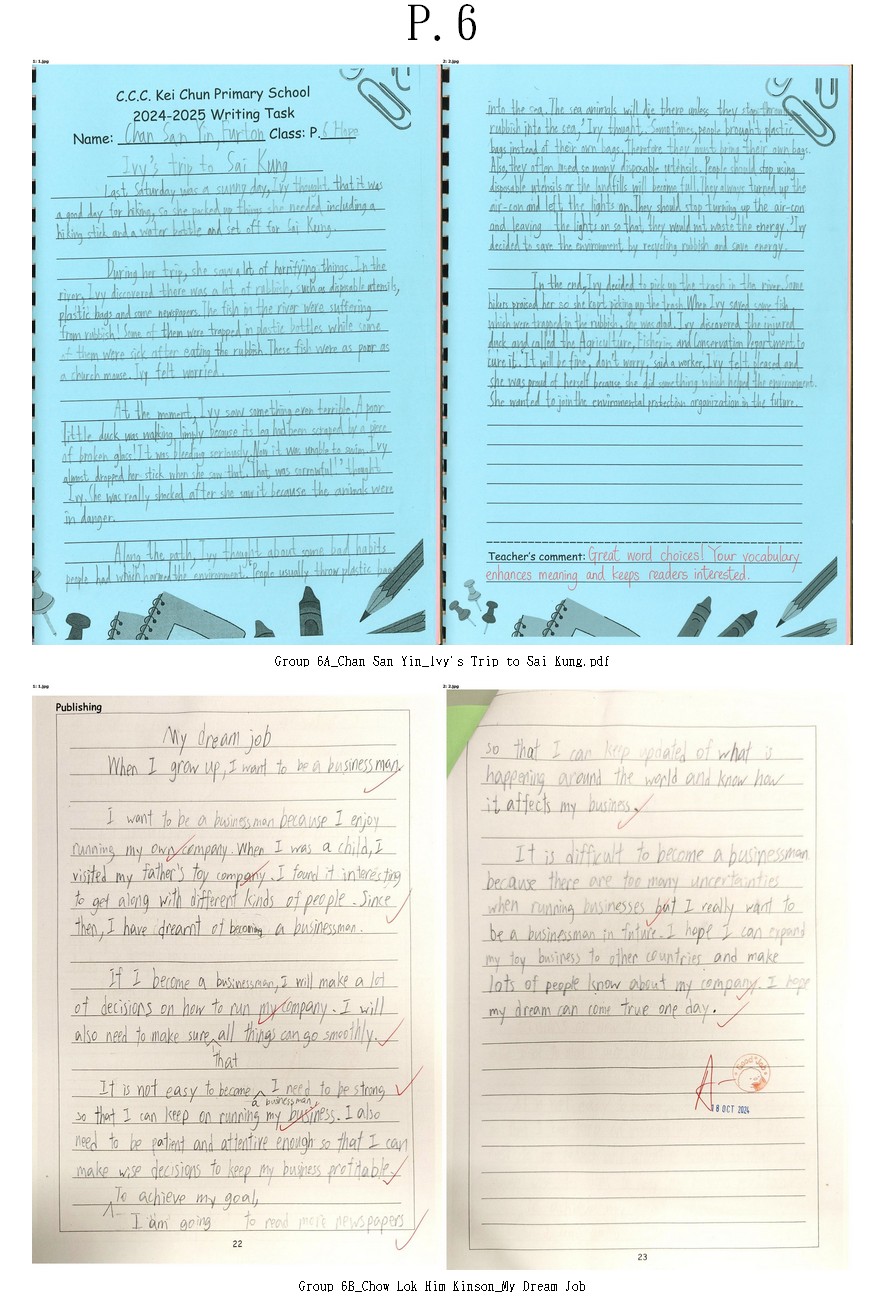 P.6
1: 1.jpg
C.C.C. Kei Chun Primary School
2024-2025 Writing Task
Name: Chan San Yin, Furton Class: P. 6 Hope
Ivy's trip to Sai Kung
Last Saturday was a sunny day, Ivy thought that it was
a good day for hiking, so she packed up things she needed including a
hiking stick and a water bottle and set off for Sai Kung.
During her trip, she saw a lot of horrifying things. In the
river, Ivy discovered there was a lot of rubbish, such as disposable utensils,
plastic bags and some newspapers. The fish in the river were suffering
from rubbish! Some of them were trapped in plastic bottles while some
of them were sick after eating the rubbish. These fish were as poor as
a church mouse. Ivy felt worried.
At the moment, Ivy saw something even terrible. A poor
little duck was walking limply because its leg had been scraped by a piece
of broken glass! It was bleeding seriously. Now it was unable to swim. Ivy
almost dropped her stick when she saw that. 'That was sorrowful!' thought
Ivy. She was really shocked after she saw it because the animals were
in danger.
Along the path, Ivy thought about some bad habits
people had which harmed the environment. 'People usually throw plastic bags
2: 2.jpg
into the sea. The sea animals will die there unless they stop throwing
rubbish into the sea,' Ivy thought. 'Sometimes, people brought plastic
bags instead of their own bags. Therefore they must bring their own bags.
Also, they often used so many disposable utensils. People should stop using
disposable utensils or the landfills will become full. They always turned up the
air-con and left the lights on. They should stop turning up the air-con
and leaving the lights on so that they would not waste the energy.' Ivy
decided to save the environment by recycling rubbish and save energy.
In the end, Ivy decided to pick up the trash in the river. Some
hikers praised her so she kept picking up the trash. When Ivy saved some fish
which were trapped in the rubbish, she was glad. Ivy discovered the injured
duck and called the Agriculture, Fisheries and Conservation Department to
cure it. 'It will be fine, don't worry,' said a worker, Ivy felt pleased and
she was proud of herself because she did something which helped the environment.
She wanted to join the enviromental protection organization in the future.
Teacher's comment: Great word choices! Your vocabulary
enhances meaning and keeps readers interested.
Group 6A_Chan San Yin_Ivy's Trip to Sai Kung.pdf
1: 1.jpg
Publishing
My dream job
When I grow up, I want to be a businessman.
I want to be a businessman because I enjoy
running my own company. When I was a child, I
visited my father's toy company. I found it interesting
to get along with different kinds of people. Since
then, I have dreamt of becoming a businessman.
If I become a businessman, I will make a lot
of decisions on how to run my company. I will
also need to make sure all things can go smoothly.
that
It is not easy to become I need to be strong
a businessman.
so that I can keep on running my business. I also
need to be patient and attentive enough so that I can
make wise decisions to keep my business profitable.
To achieve my goal,
I am going to read more newspapers
22
2: 2.jpg
so that I can keep updated of what is
happening around the world and know how
it affects my business.
It is difficult to become a businessman
because there are too many uncertainties
when running businesses but I really want to
be a businessman in future. I hope I can expand
my toy business to other countries and make
lots of people know about my company. I hope
my dream can come true one day.
A-
Good Job
18 OCT 2024
23
Group 6B_Chow Lok Him Kinson_My Dream Job